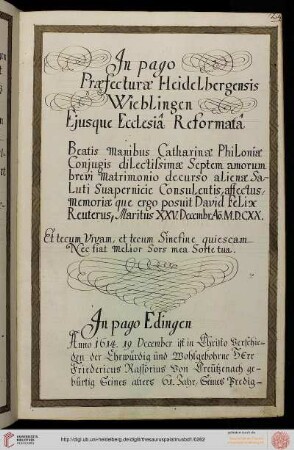 In pago
Præfecturæ Heidelbergensis
Wieblingen
Ejusque Ecclesiâ Reformatâ
Beatis Manibus Catharinæ Philoniæ
Conjugis dilectissimæ Septem annorum
brevi Matrimonio decurso alienæ Sa-
luti Suæpernicie Consulentis, affectus,
memoriæ que ergo posuit David Felix
Reuterus, Maritus XXV. Decembr. Aô. M.D.CXX.
Et tecum Vivam, et tecum Sine fine quiescam
Nec fiat melior Sors mea Sorte tua.
In pago Edingen
Anno 1614. 19 December ist in Christo Verschie-
den der Ehrwürdig und Wohlgebohrne Herr
Fridericus von Creützenach ge-
bürtig Seines alters 61. Jahr, Seines Predig-
http://digi.ub.uni-heidelberg.de/diglit/thesauruspalatinusbd1/0263